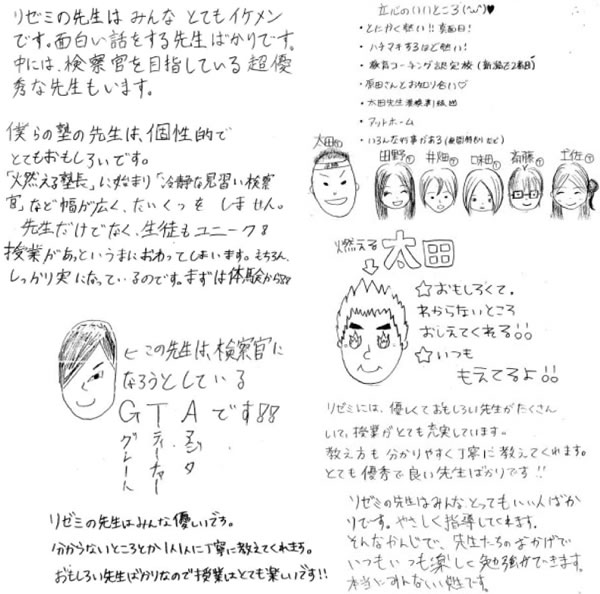 リゼミの先生は みんな とてもイケメン
です。面白い話をする先生ばかりです。
中には、検察官を目指している 超優
秀な先生もいます。
僕らの塾の先生は、個性的で
とてもおもしろいです。
「火然える塾長」に始まり「冷静な見習い検察
官」など幅が広く、たいくつを しません。
先生だけでなく、生徒もユニーク!!
授業があっというまにおわってしまいます。もちろん、
しっかり実になっているのです。まずは体験から!!!
←この先生は、検察官に
なろうとしている
G T A です!!
グレート
ティーチャー
リゼミの先生はみんな優しいです。
分からないところとか1人1人に丁寧に教えてくれます。
おもしろい先生ばかりなので授業はとても楽しいです!!
のいいところ(^ω^)♥
・とにかく熱い!!真面目!
・ハチマキするほど熱い!
・教育コーチング認定校(新潟で2番目)
・原田さんとお知り合い♡
・太田先生
・アットホーム
・いろんな行事がある
太田
田野
井畑
味田
斎藤
土佐
燃える
太田
☆おもしろくて。
わからないところ
おしえてくれる!!
☆いつも
もえてるよ!!
リゼミには、優しくておもしろい先生がたくさん
いて、授業がとても充実しています。
教え方も分かりやすく丁寧に教えてくれます。
とても優秀で良い先生ばかりです!!
リゼミの先生はみんなとってもいい人ばか
りです。やさしく指導してくれます。
そんなかんじで、先生たちのおかげで
いつもいつも楽しく勉強ができます。
本当にすんない塾です。